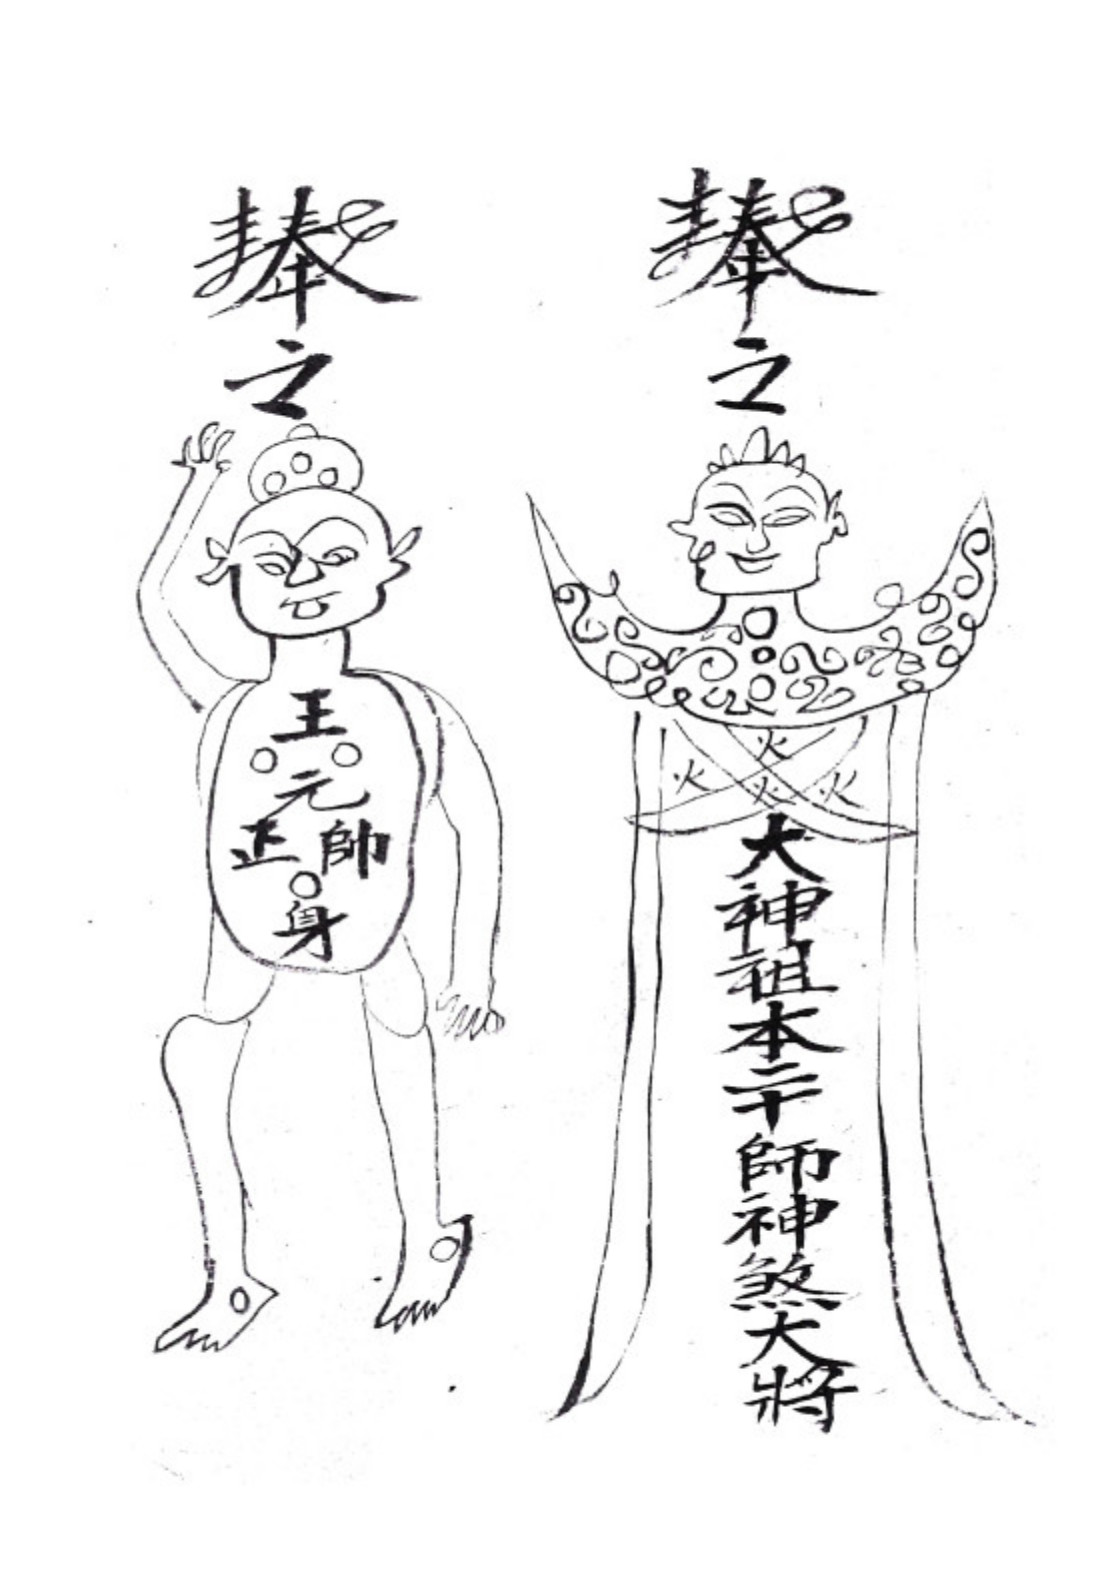 之
火
火 火 火
大神祖本
師神煞大將
之
王
元
正 帥
身